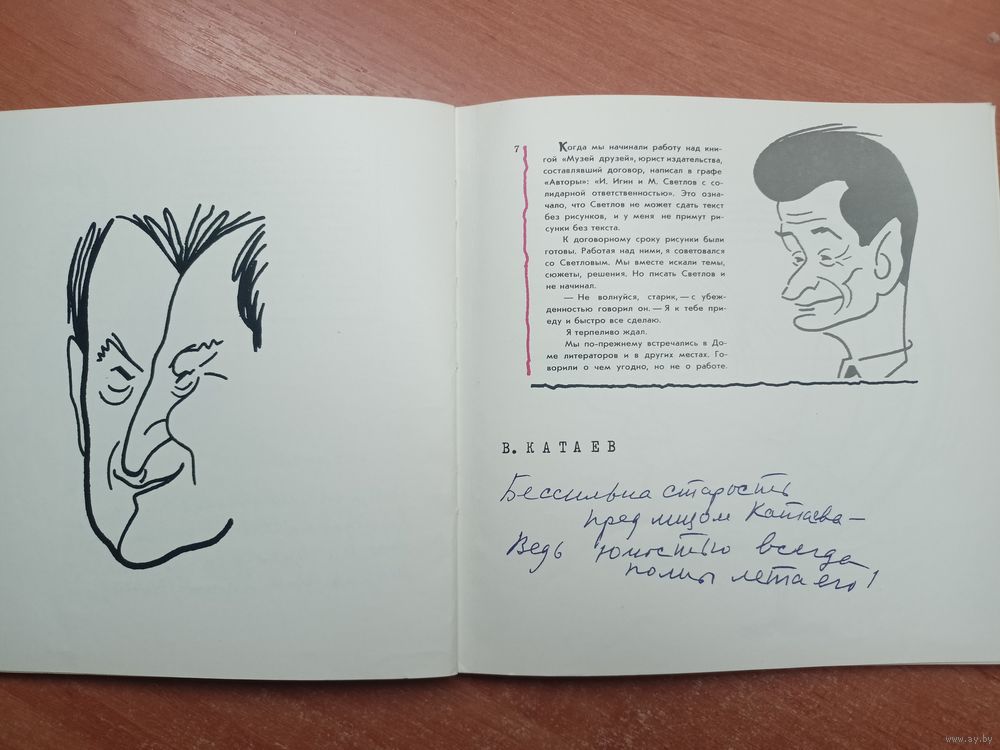 7
Когда мы начинали работу над кни-
гой «Музей друзей», юрист издательства,
составлявший договор, написал в графе
«Авторы»: «И. Игин и М. Светлов с со-
лидарной ответственностью». Это озна-
чало, что Светлов не может сдать текст
без рисунков, и у меня не примут ри-
сунки без текста.
К договорному сроку рисунки были
готовы. Работая над ними, я советовался
со Светловым. Мы вместе искали темы,
сюжеты, решения. Но писать Светлов и
не начинал.
— Не волнуйся, старик, — с убеж-
денностью говорил он. — Я к тебе при-
еду и быстро все сделаю.
Я терпеливо ждал.
Мы по-прежнему встречались в До-
ме литераторов и в других местах. Го-
ворили о чем угодно, но не о работе.
В. КАТАЕВ
Бессильна старость
пред лицом Катаева —
Ведь юностью всегда
полны лета его!
www.ay.by